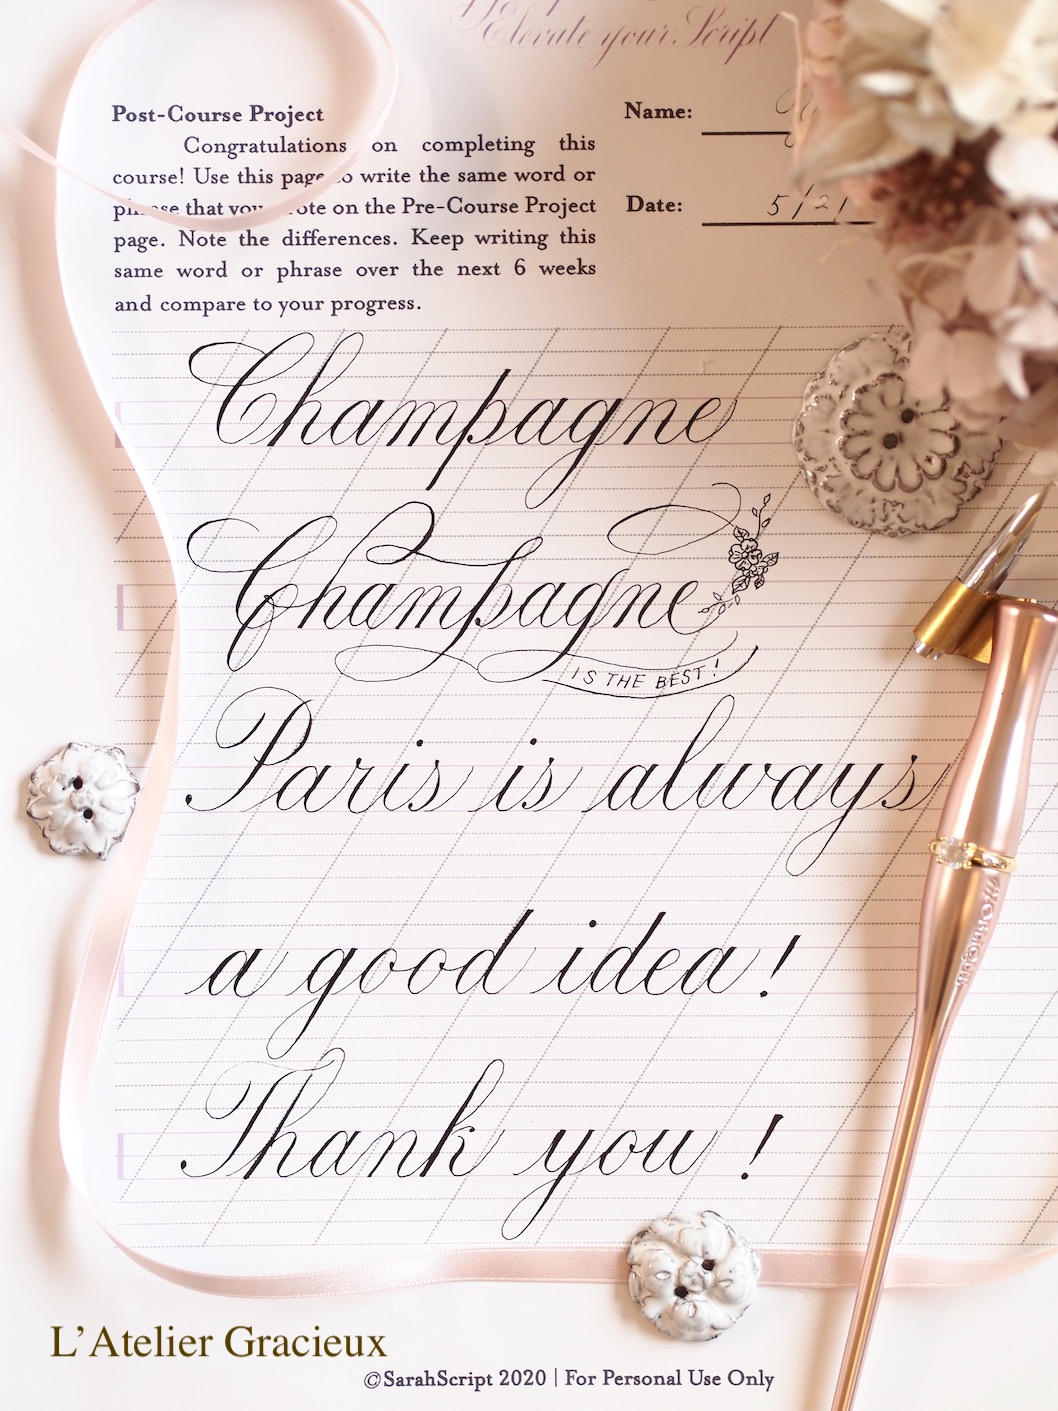 Elevate your Script
Post-Course Project
Name:
Congratulations on completing this
course! Use this page to write the same word or
phrase that you wrote on the Pre-Course Project
page. Note the differences. Keep writing this
same word or phrase over the next 6 weeks
and compare to your progress.
Date: 5/21
Champagne
Champagne
IS THE BEST!
Paris is always
a good idea!
Thank you!
L'Atelier Gracieux
©SarahScript 2020 | For Personal Use Only